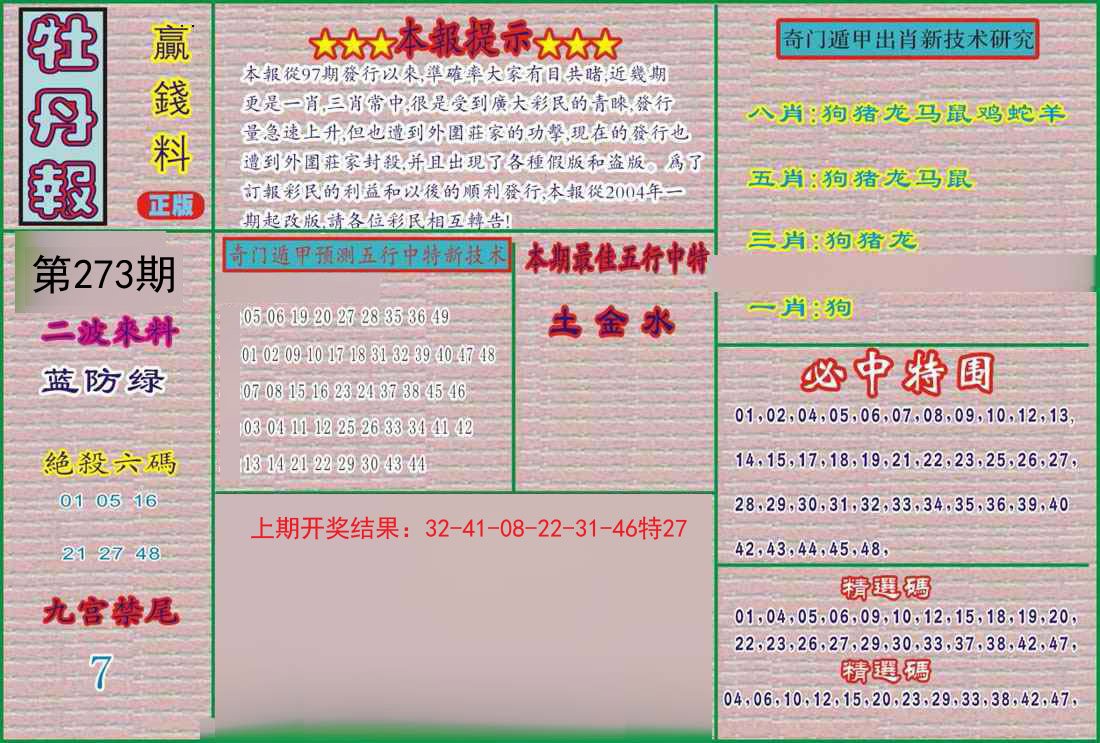 牡丹報
贏錢料
正版
第273期
二波來料
蓝防绿
絕殺六碼
01 05 16
21 27 48
九宫禁尾
7
★★★本報提示★★★
本報從97期發行以來,準確率大家有目共睹,近幾期
更是一肖,三肖常中,很是受到廣大彩民的青睞,發行
量急速上升,但也遭到外圍莊家的功擊,現在的發行也
遭到外圍莊家封殺,并且出現了各種假版和盗版。爲了
訂報彩民的利益和以後的順利發行,本報從2004年一
期起改版,請各位彩民相互轉告!
奇门遁甲预测五行中特新技术
05 06 19 20 27 28 35 36 49
01 02 09 10 17 18 31 32 39 40 47 48
07 08 15 16 23 24 37 38 45 46
03 04 11 12 25 26 33 34 41 42
13 14 21 22 29 30 43 44
本期最佳五行中特
土金水
上期开奖结果：32-41-08-22-31-46特27
奇门遁甲出肖新技术研究
八肖:狗猪龙马鼠鸡蛇羊
五肖:狗猪龙马鼠
三肖:狗猪龙
一肖:狗
必中特围
01,02,04,05,06,07,08,09,10,12,13,
14,15,17,18,19,21,22,23,25,26,27,
28,29,30,31,32,33,34,35,36,39,40
42,43,44,45,48,
精選碼
01,04,05,06,09,10,12,15,18,19,20,
22,23,26,27,29,30,33,37,38,42,47,
精選碼
04,06,10,12,15,20,23,29,33,38,42,47,